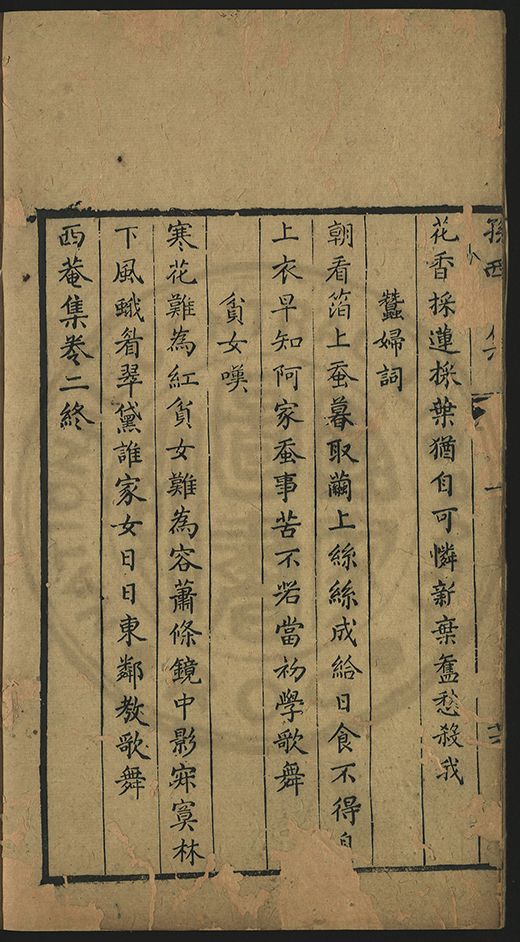 孫西
花香採蓮採葉猶自可憐新棄舊愁殺我
蠶婦詞
朝看箔上蚕暮取繭上絲絲成給日食不得
上衣早知阿家蚕事苦不若當初學歌舞
貧女嘆
寒花難為紅貧女難為容蕭條鏡中影寂寞林
下風蛾眉翠黛誰家女日日東鄰教歌舞
西菴集卷二終